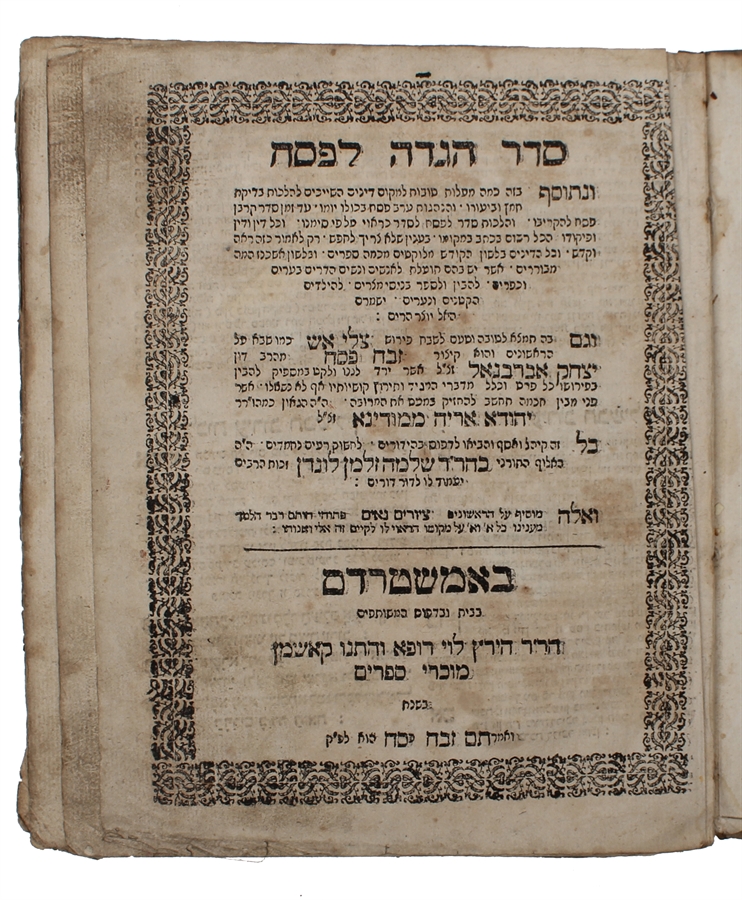 סדר הגדה לפסח
ונתוסף בזה כמה מעלות טובות למקום דינים השייכים להלכות בדיקת
חמץ וביעורו · והנהגות ערב פסח בכולו יומו · עד זמן סדר קרבן
פסח להקריבו · והלכות סדר לפסח לסדר כראוי על פי סימנו · וכל דין ודין
ופיקודו הכל רשום בכתב במקומו · בענין שלא צריך לחפש · רק לאמור כזה ראה
וקדש · וכל הדינים בלשון הקודש מלוקטים מכמה ספרים · ובלשון אשכנז המה
מבוררים · אשר יש בהם תועלת לאנשים ונשים הדרים בערים
וכפרים · להבין ולספר בניסי מצרים · להילדים
הקטנים ונערים · ישמרם
האל יוצר הרים :
וגם בה תמצא לטובה וטעם לשבח פירוש צלי אש כמו שבא על
הראשונים והוא קיצור זבח פסח מהרב דון
יצחק אברבנאל ז"ל אשר ירד לגנו ולקט במספיק להבין
בפירושו כל פרט וכלל מדברי המגיד ותירוץ קושיותיו אף לא כשאלו · אשר
פני מבין חכמה תחשב להחזיק במכס את המרובה · ה"ה הגאון כמהור"ר
יהודא אריה ממודינא ז"ל
כל זה קיהל ואסף והביאו לדפוס בהידורים · לחשוק רעים נחמדים · ה"ה
האלוף התורני כהר"ד שלמה זלמן לונדן זכות הרבים
יעמוד לו לדור דורים :
ואלה מוסיף על הראשונים ציורים נאים פתוחי חותם דבר הלמד
מענינו כל א' וא' על מקומו הראוי לו לקיים זה אלי ואנוהו :
באמשטרדם
בבית ובדפוס המשותפים
הר"ר הירץ לוי רופא וחתנו קאשמן
מוכרי ספרים
בשנת
ואמרתם זבח פסח הוא לפ"ק